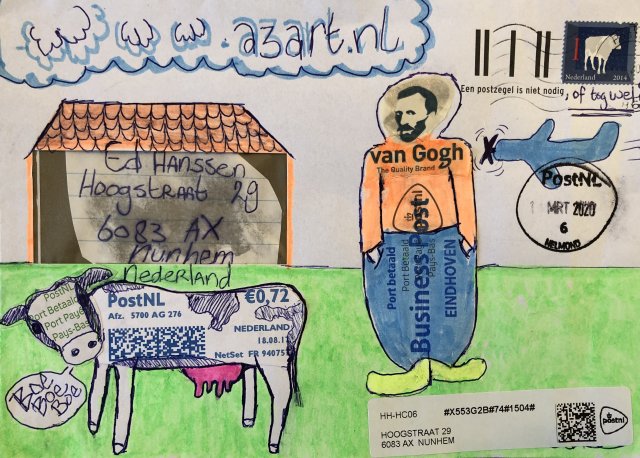 .a3art.nl
1
Nederland 2014
Een postzegel is niet nodig
, of tog wel
Ed Hanssen
Hoogstraat 29
6083 AX
Nunhem
Nederland
van Gogh
The Quality Brand
Port betaald
Port Betaald
Pays-Bas
Business Post
EINDHOVEN
PostNL
MRT 2020
6
HELMOND
PostNL
Port Betaald
Port Payé
Pays-Bas
PostNL
€0,72
Afz. 5700 AG 276
NEDERLAND
18.08.1
NetSet FR 94075
Boe
Boe
Boe
HH-HC06 #X553G2B#74#1504#
HOOGSTRAAT 29
6083 AX NUNHEM
postnl